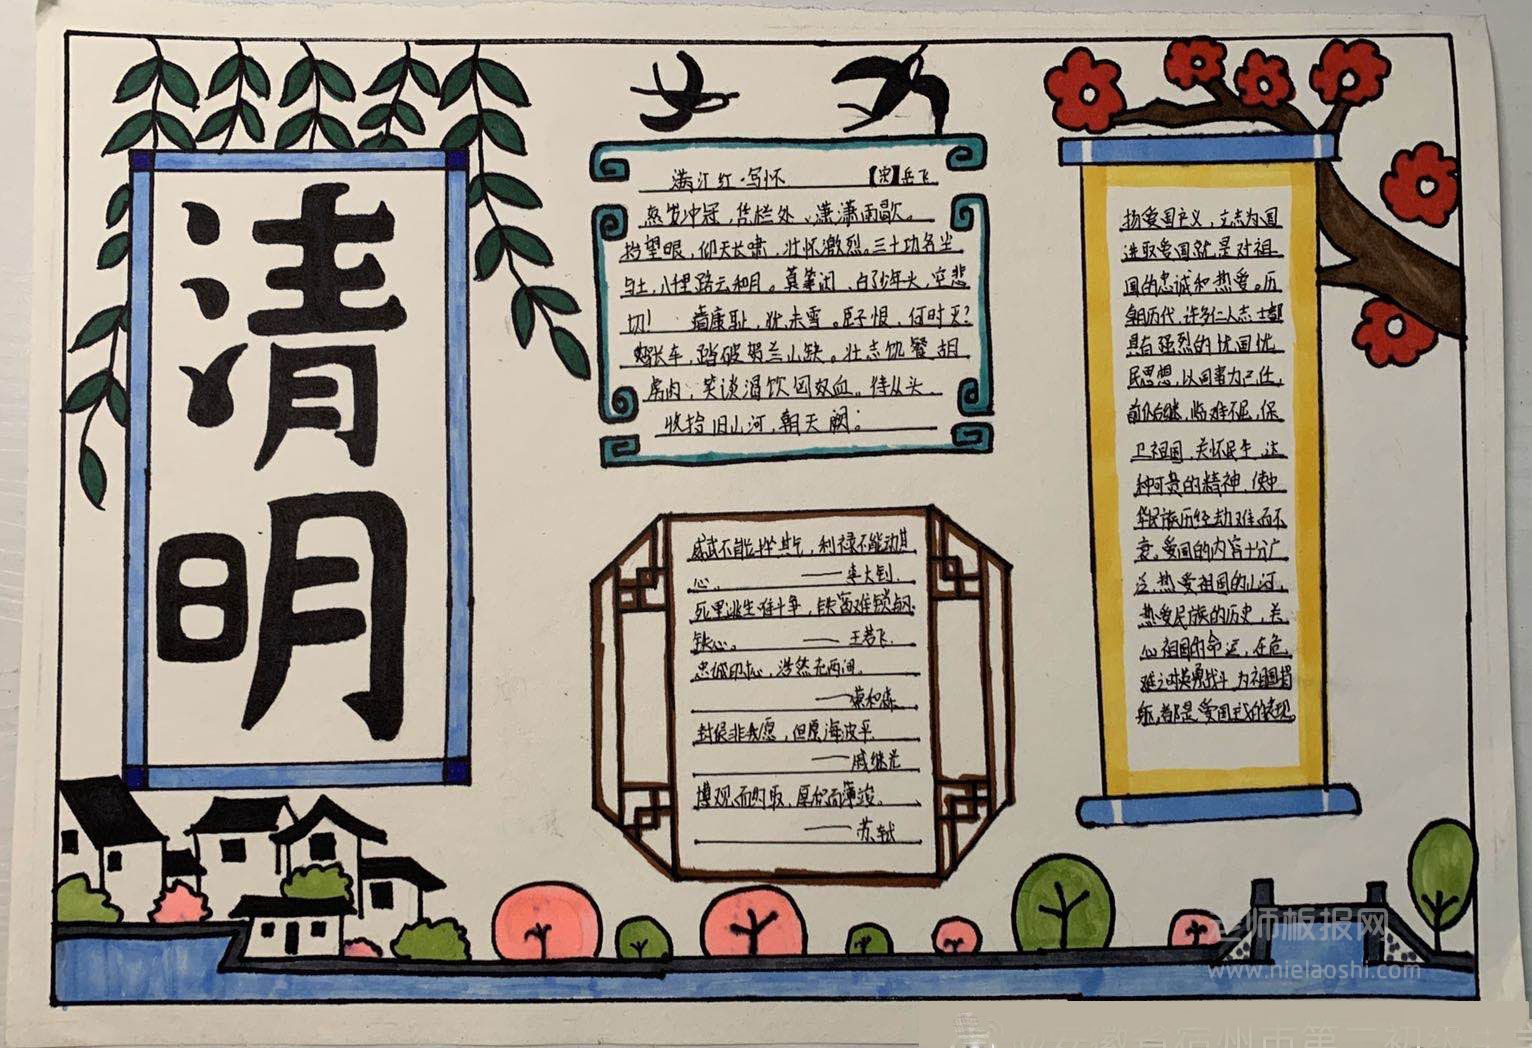 清
明
满江红·写怀 【宋】岳飞
怒发冲冠，凭栏处、潇潇雨歇。
抬望眼，仰天长啸，壮怀激烈。三十功名尘
与土，八千里路云和月。莫等闲、白了少年头，空悲
切！ 靖康耻，犹未雪。臣子恨，何时灭？
驾长车，踏破贺兰山缺。壮志饥餐胡
虏肉，笑谈渴饮匈奴血。待从头、
收拾旧山河，朝天阙。
威武不能挫其气，利禄不能动其
心。 ——李大钊
死里逃生唯斗争，铁窗难锁钢
铁心。 ——王若飞
忠诚印心，浩然充两间。
——蔡和森
封侯非我愿，但愿海波平
——戚继光
博观而约取，厚积而薄发。
——苏轼
扬爱国主义，立志为国
进取爱国就是对祖
国的忠诚和热爱。历
朝历代，许多仁人志士都
具有强烈的忧国忧
民思想，以国事为己任，
前仆后继，临难不屈，保
卫祖国，关怀民生，这
种可贵的精神，使中
华民族历经劫难而不
衰。爱国的内容十分广
泛，热爱祖国的山河，
热爱民族的历史，关
心祖国的命运，在危
难之时英勇战斗，为祖国捐
躯，都是爱国主义的表现。
老师板报网
www.nielaoshi.com